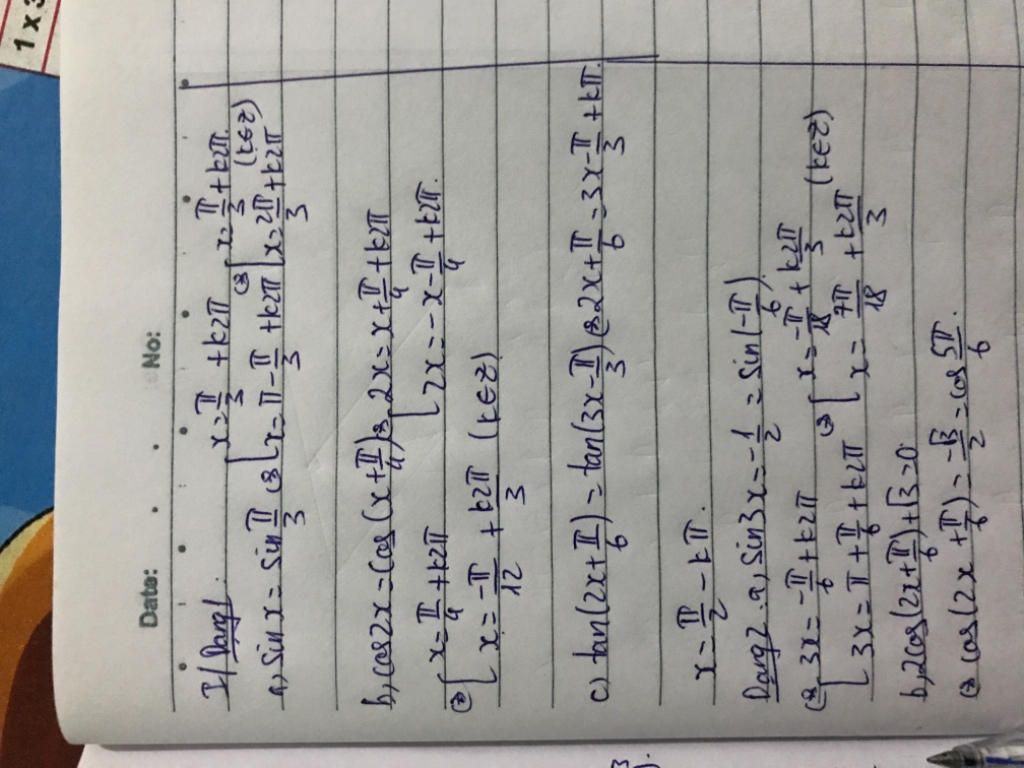 Date: No:
I/ Dạng 1.
x = π/3 + k2π x = π/3 + k2π
a, sin x = sin π/3 ⇔ [ x = π - π/3 + k2π ⇔ [ x = 2π/3 + k2π (k∈Z)
b, cos2x = cos(x + π/4) ⇔ 2x = x + π/4 + k2π
[ 2x = -x - π/4 + k2π.
⇔ [ x = π/4 + k2π
x = -π/12 + k2π/3 (k∈Z)
c) tan(2x + π/6) = tan(3x - π/3) ⇔ 2x + π/6 = 3x - π/3 + kπ.
x = π/2 - kπ.
Dạng 2. a, sin3x = -1/2 = sin(-π/6).
⇔ [ 3x = -π/6 + k2π ⇔ [ x = -π/18 + k2π/3
3x = π + π/6 + k2π x = 7π/18 + k2π/3 (k∈Z)
b, 2cos(2x + π/6) + √3 = 0.
⇔ cos(2x + π/6) = -√3/2 = cos 5π/6.
1 x 3